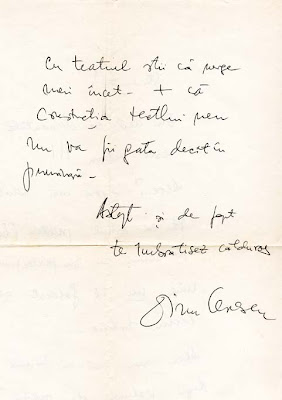 Cu teatrul știi că merge
mai încet – + că
Construcția teatrului meu
nu va fi gata decît în
primăvară –
Aștept și de fapt
te îmbrățișez călduros